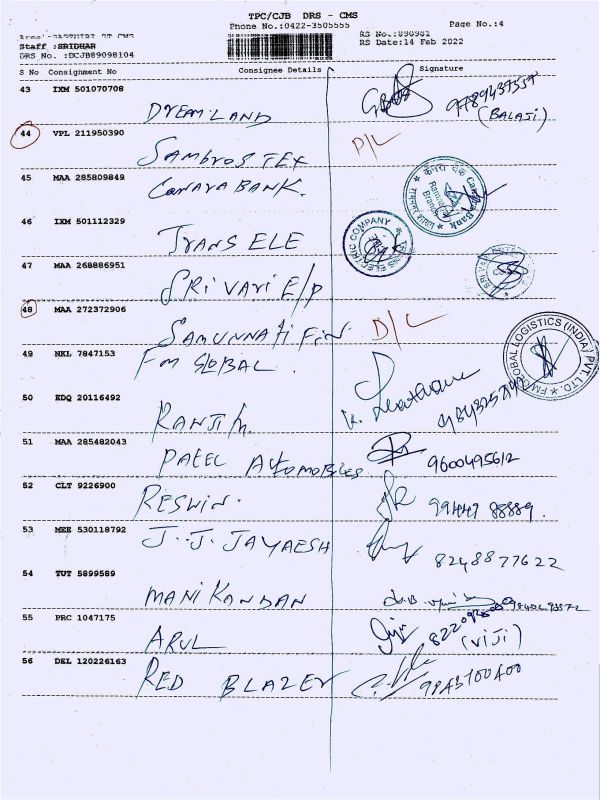 TPC/CJB DRS - CMS
Phone No.:0422-3505555 Page No.:4
RS No.:898981
Staff :SRIDHAR RS Date:14 Feb 2022
DRS No. :DCJB89098104
S No Consignment No Consignee Details Signature
43 IXM 501070708
DREAMLAND
(BALAJI)
44 VPL 211950390
SAMBROS TEX D/L
45 MAA 285809849
CANARA BANK.
46 IXM 501112329
TRANS ELE
47 MAA 268886951
SRI VARI E/P
48 MAA 272372906
SAMUNNATI FIN. D/L
49 NKL 7847153
FM GLOBAL.
FM GLOBAL LOGISTICS (INDIA) PVT. LTD.
50 EDQ 20116492
RANJI M.
51 MAA 285482043
PATEL AUTOMOBILES 9600495612
52 CLT 9226900
RESWIN. 99447 88889.
53 MEE 530118792
J.J. JAYAESH 8248877622
54 TUT 5899589
MANIKANDAN
55 PRC 1047175
ARUL (VIJI)
56 DEL 120226163
RED BLAZER 9843100400